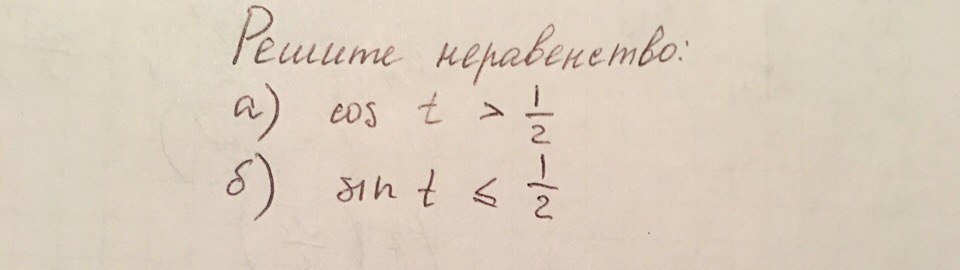 Решите неравенство:
а) cos t > 1/2
б) sin t ≤ 1/2